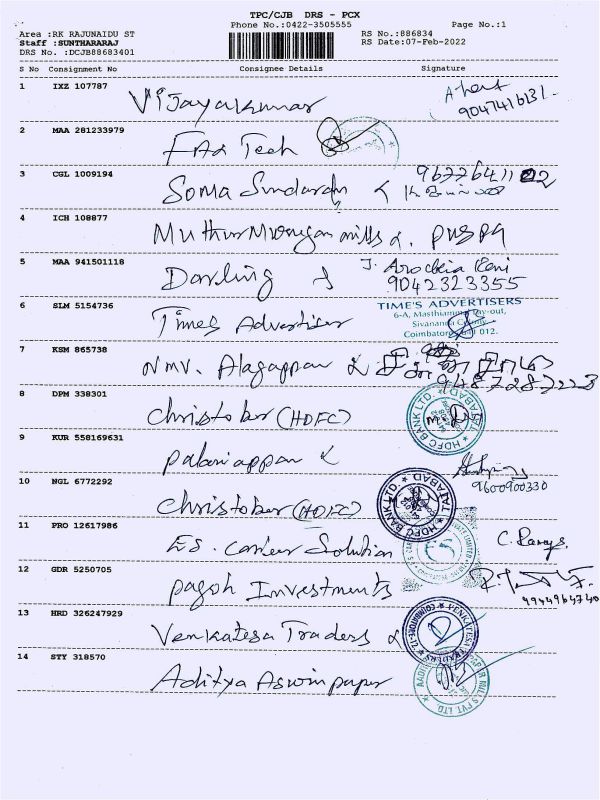 TPC/CJB DRS - PCX
Phone No.:0422-3505555
Page No.:1
Area :RK RAJUNAIDU ST
RS No.:886834
Staff :SUNTHARARAJ
RS Date:07-Feb-2022
DRS No. :DCJB88683401
S No Consignment No Consignee Details Signature
1 IXZ 107787 Vijayakumar
9047416131
2 MAA 281233979 FAX Tech
3 CGL 1009194 Soma Sundaram
4 ICH 108877 Muthu Murugan mills
5 MAA 941501118 Darling J. Arockia Reni
9042323355
6 SLM 5154736 Times Advertiser
TIME'S ADVERTISERS
6-A, Masthiamma Lay-out,
Sivananda Colony
Coimbatore 641 012.
7 KSM 865738 N.M.V. Alagappan
9487287223
8 DPM 338301 Christober (HDFC)
HDFC BANK LTD.
9 KUR 558169631 Palaniappan
9600900330
10 NGL 6772292 Christober (HDFC)
HDFC BANK LTD. TATABAD
11 PRO 12617986 E.S. Career Solution
12 GDR 5250705 pagoh Investments
13 HRD 326247929 Venkatesa Traders
VENKATESA TRADERS COIMBATORE-12
14 STY 318570 Aditya Aswin paper